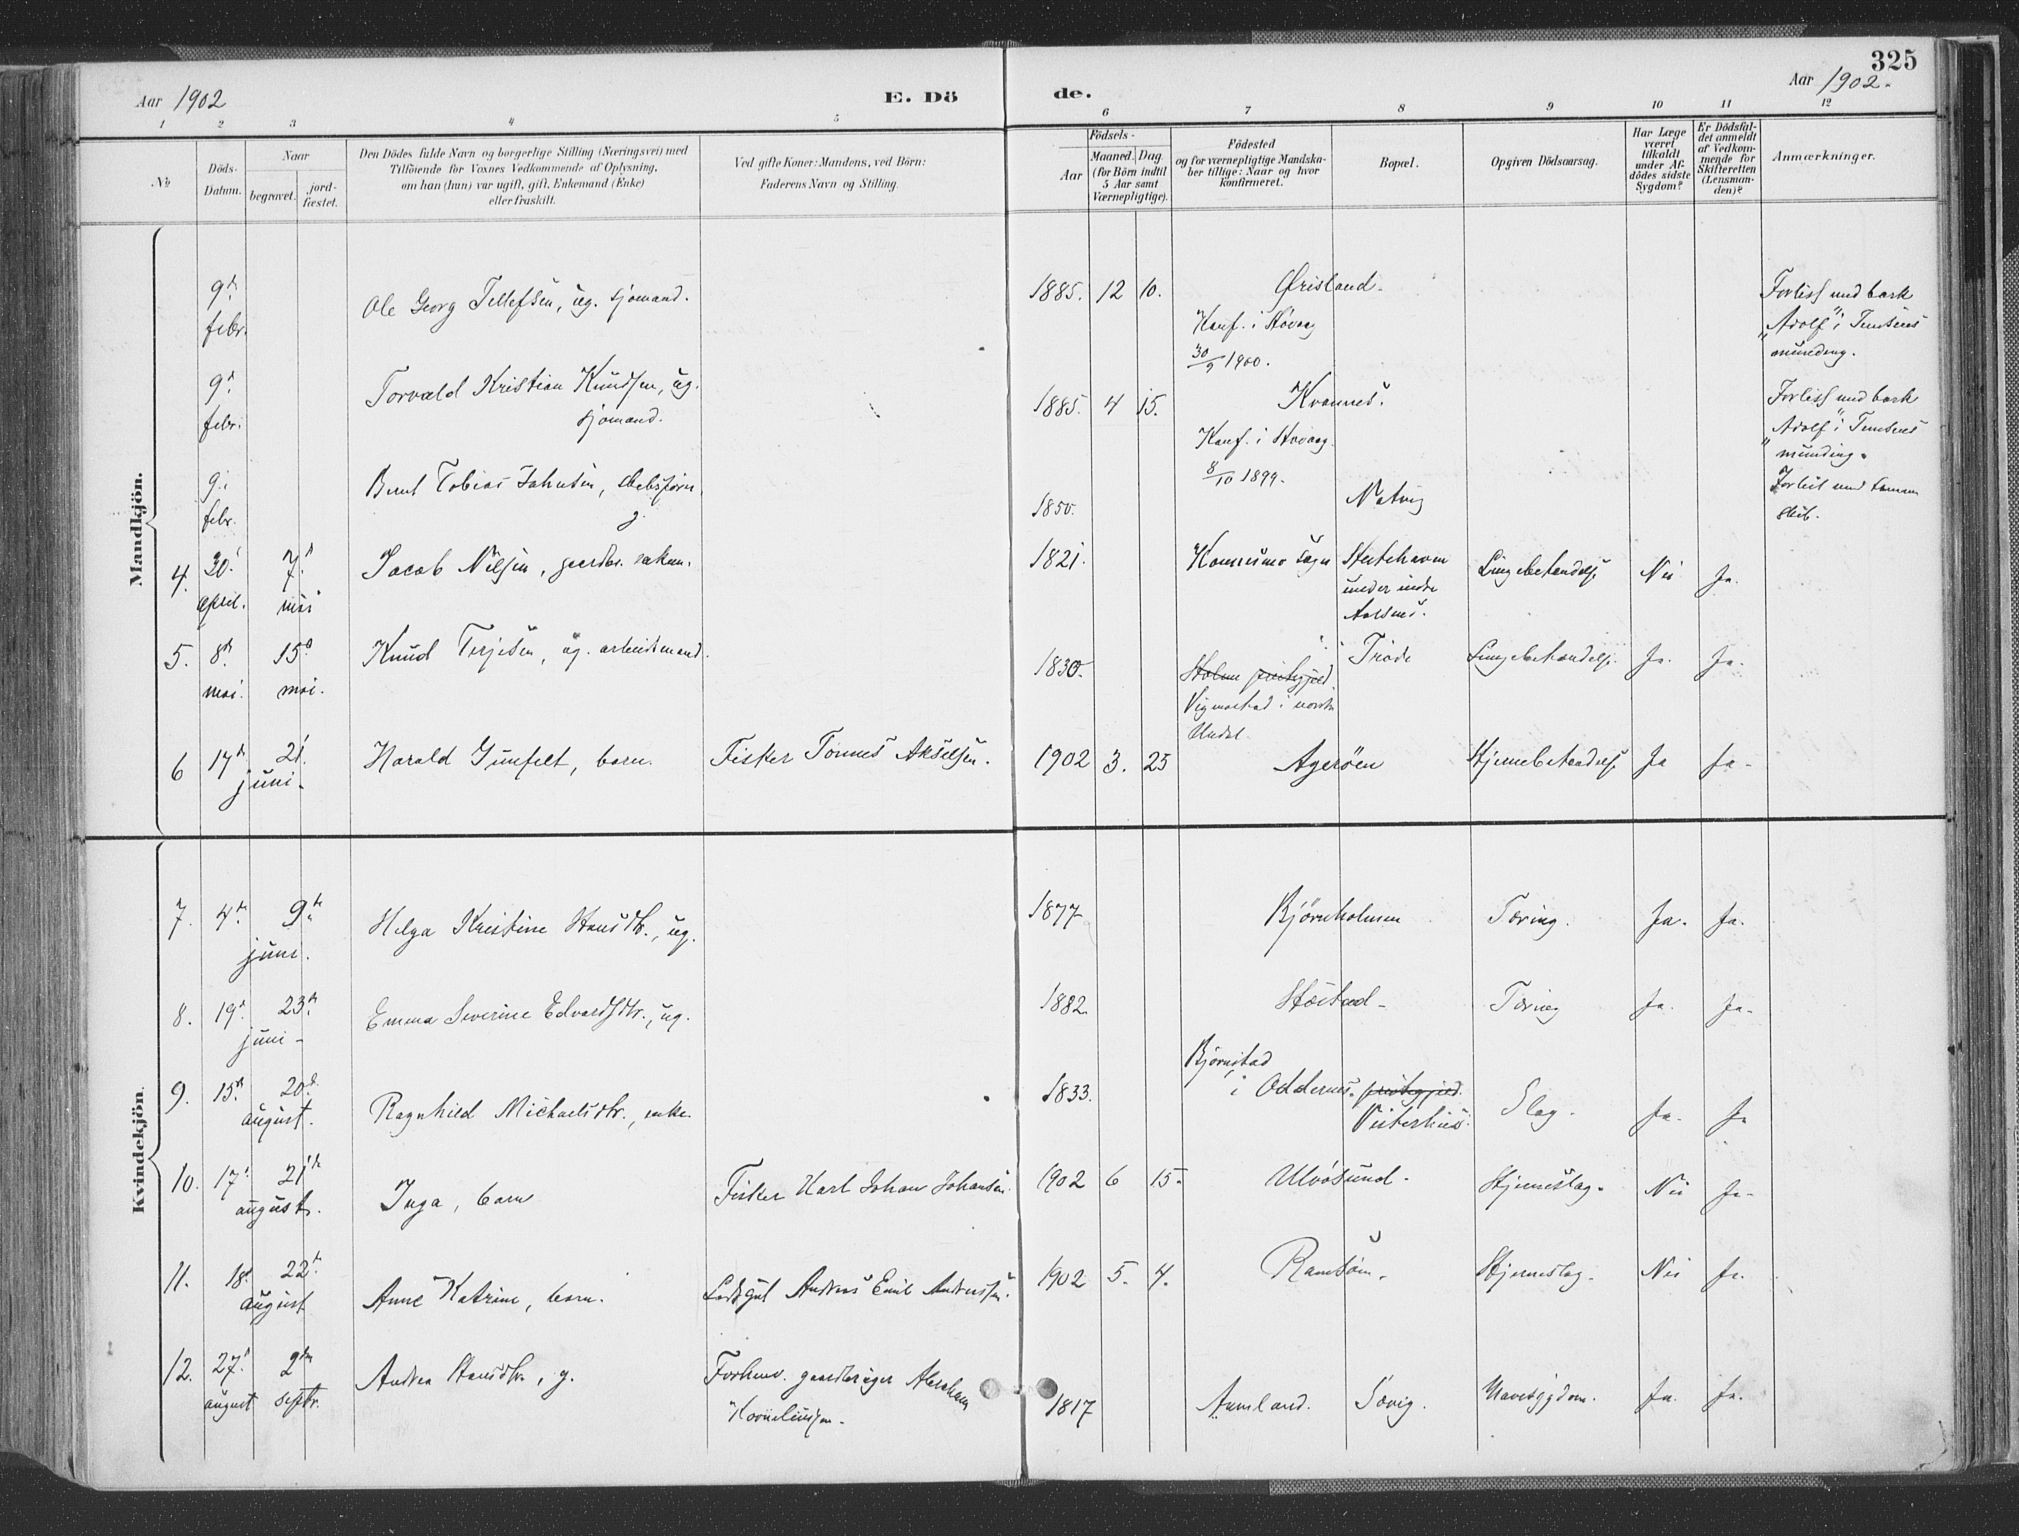 325
Aar 1902
E. Dö
de.
Aar 1902.
1 2 3 4 5 6 7 8 9 10 11 12
No
Döds-
Datum.
Naar
begravet.
jord-
fæstet.
Den Dödes fulde Navn og borgerlige Stilling (Næringsvei) med
Tilföiende for Voxnes Vedkommende af Oplysning,
om han (hun) var ugift, gift, Enkemand (Enke)
eller fraskilt.
Ved gifte Koner: Mandens, ved Börn:
Faderens Navn og Stilling.
Födsels-
Aar
Maaned. Dag.
(for Börn indtil
5 Aar samt
Værnepligtige).
Födested
og for værnepligtige Mandska-
ber tillige: Naar og hvor
konfirmeret.
Bopæl.
Opgiven Dödsaarsag.
Har Læge
været
tilkaldt
under Af-
dödes sidste
Sygdom?
Er Dödsfal-
det anmeldt
af Vedkom-
mende for
Skifteretten
(Lensman-
den)?
Anmærkninger.
Mandkjön.
9de
febr.
Ole Georg Tellefsen, ug. sjømand.
1885. 12 10.
Ørisland.
Konf. i Høvaag
30/9 1900.
Forlist med bark
"Adolf" i Temsens
munding.
9d
febr.
Torvald Kristian Knudsen, ug.
sjømand.
1885. 4 15.
Kvannes.
Konf. i Høvaag
8/10 1899.
Forlist med bark
"Adolf" i Temsens
munding.
9.
febr.
Bernt Tobias Johnsen, skibsfører,
g.
1850.
Natvig
Forlist med samme
skib.
4. 30. april. 7. mai
Jacob Nilsen, gaardbr. enkem.
1821.
Konnesmo sogn
under indre
Lungebetændelse
Nei
Ja.
5. 8d mai. 15d mai.
Knud Terjesen, ug. arbeidsmand.
1830.
Holme prestegjeld.
Vigmostad i nordre
Undal.
Trøde
Lungebetændelse
Ja. Ja.
6 17d 21. juni.
Harald Gunfelt, barn.
Fisker Tønnes Akselsen.
1902 3. 25
Agerøen
Hjernebetændelse
Ja Ja.
Kvindekjön.
7. 4de 9de juni.
Helga Kristine Hansdtr., ug.
1877
Bjørnholmen
Tæring.
Ja. Ja.
8. 19d 23d juni.
Emma Severine Edvardsdtr., ug.
1882.
Hæstad.
Tæring
Ja. Ja.
9. 15d 20d august.
Ragnhild Michaelsdtr., enke.
1833.
Bjørnstad
i Oddernes prestegjeld.
Vesterhus.
Slag.
Ja. Ja
10. 17. 21de august.
Inga, barn
Fisker Karl Johan Johansen.
1902 6 15.
Ulvøsund.
Hjerneslag.
Nei Ja.
11. 18d 22de august
Anne Katrine, barn.
Lodsgut Andreas Emil Andreassen.
1902 5. 4.
Ramsøen.
Hjerneslag.
Nei Ja.
12. 27d august 2den septbr.
Andrea Hansdtr., g.
Forhenv. gaardbruger Abraham
Korneliussen.
1817
Aamland.
Sævig.
Ja. Ja.